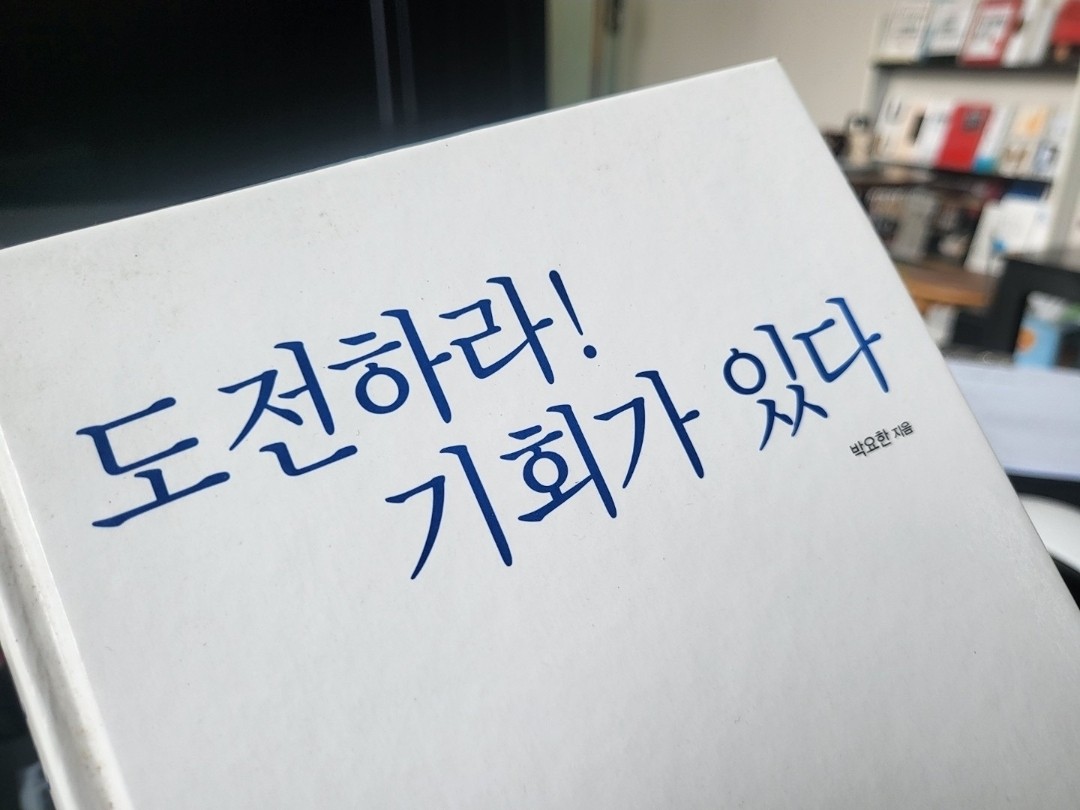 도전하라!
기회가 있다
박요한 지음